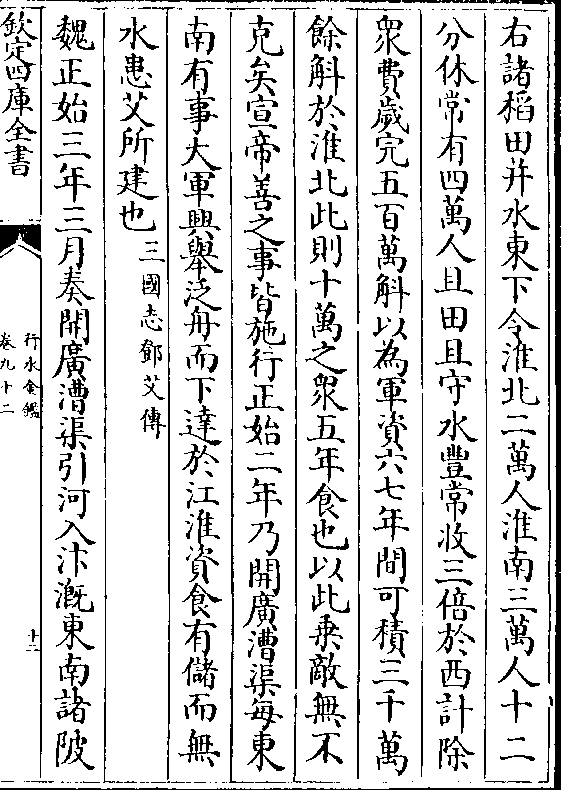 右諸稻田并水東下令淮北二萬人淮南三萬人十二
分休常有四萬人且田且守水豐常收三倍於西計除
衆費歲完五百萬斛以為軍資六七年間可積三千萬
餘斛於淮北此則十萬之衆五年食也以此乗敵無不
克矣宣帝善之事皆施行正始二年乃開廣漕渠每東
南有事大軍興舉泛舟而下達於江淮資食有儲而無
水患艾所建也三國志鄧艾傳
魏正始三年三月奏開廣漕渠引河入汴溉東南諸陂
欽定四庫全書
行水金鑑
卷九十二
十二